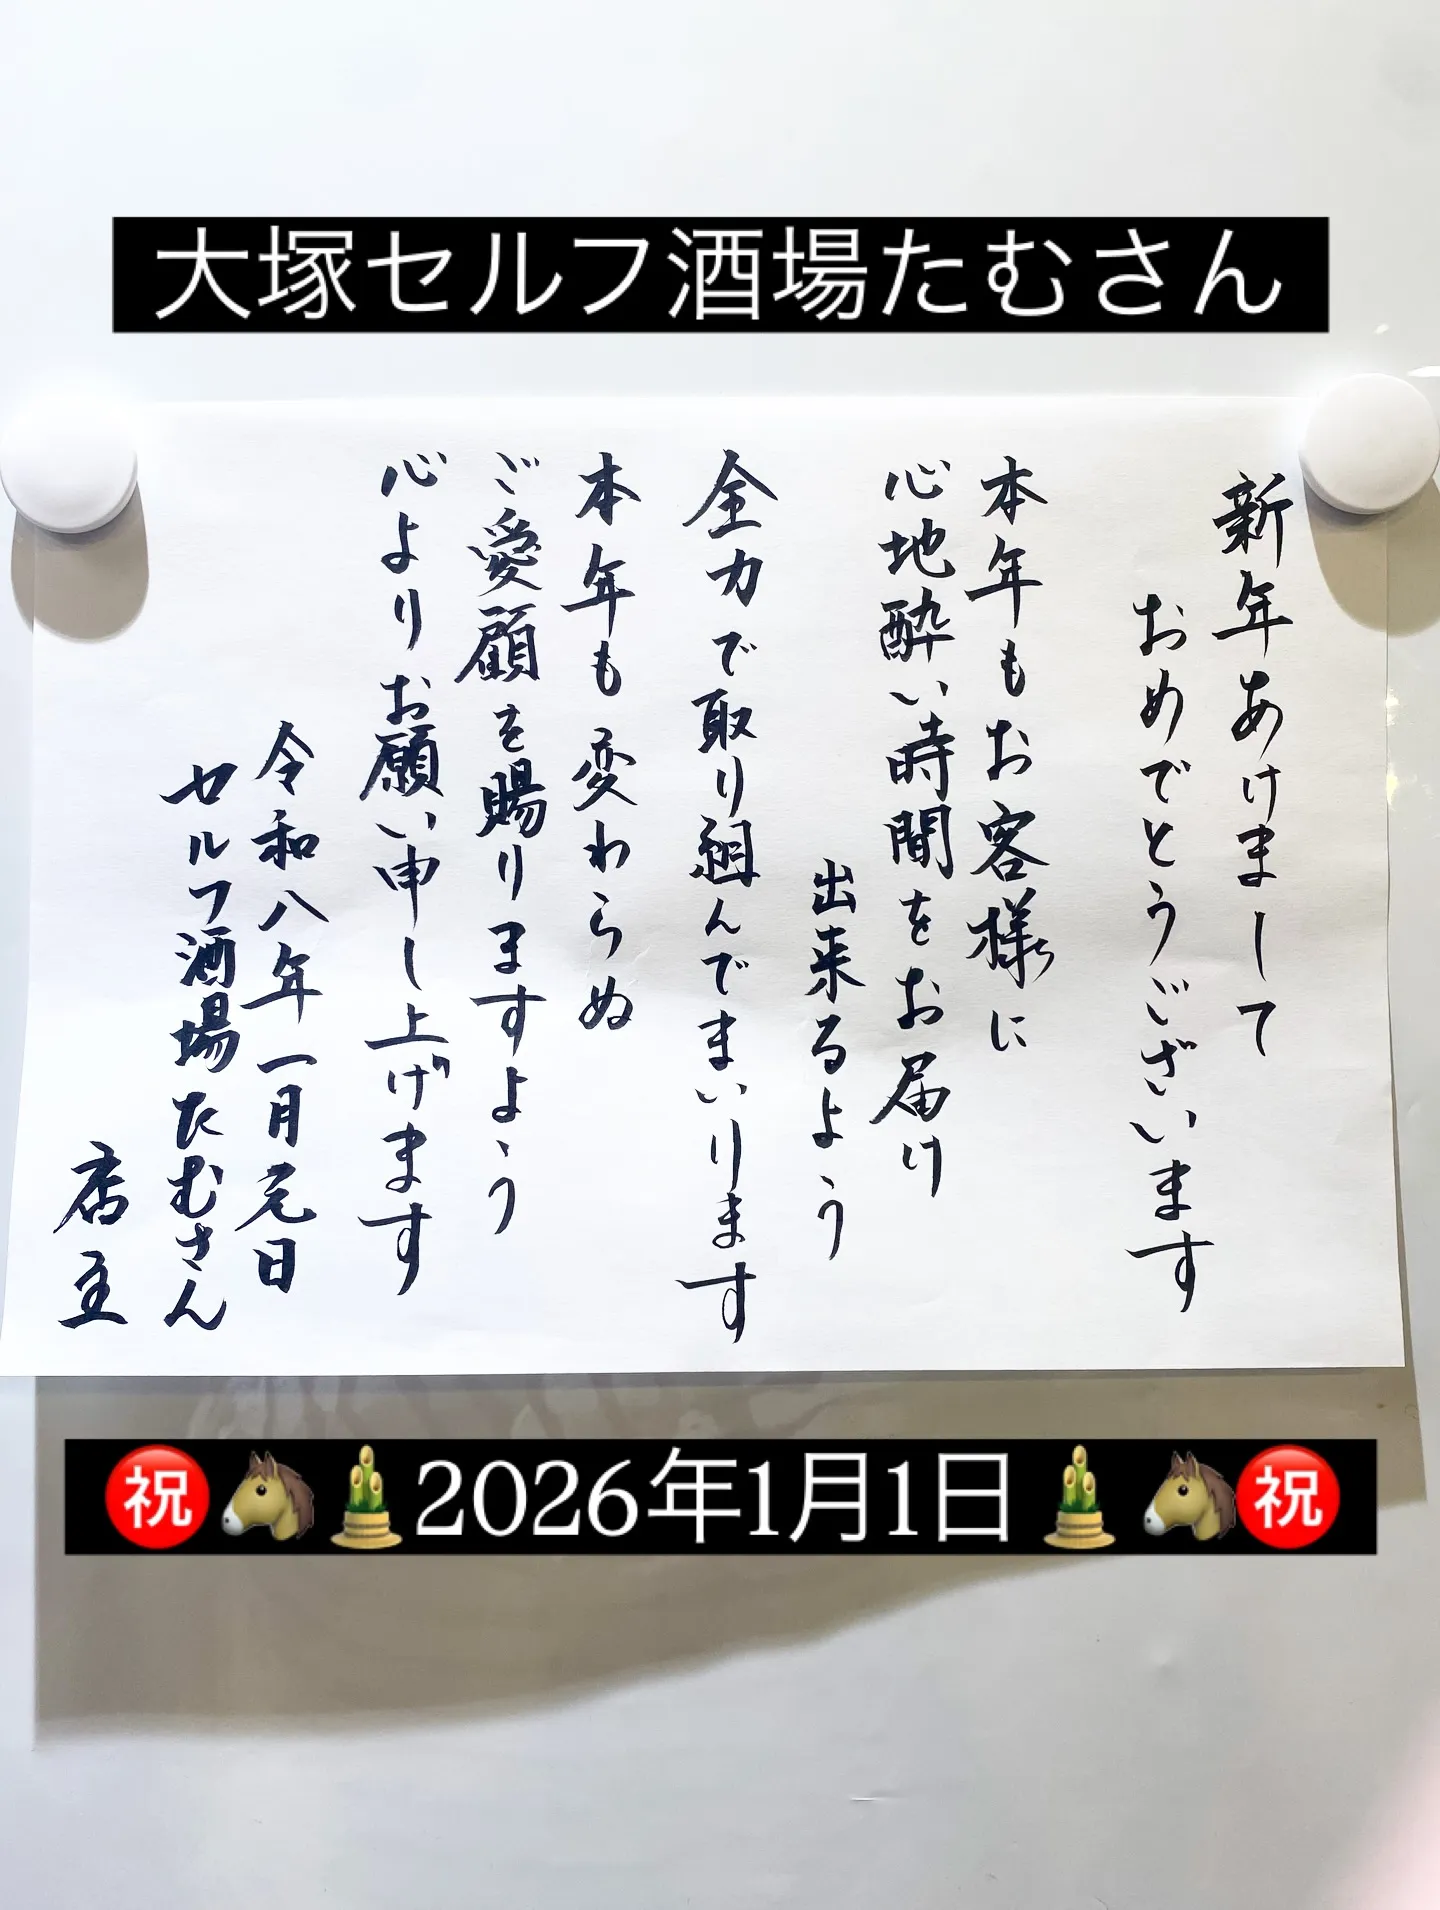 大塚セルフ酒場たむさん
新年あけまして
おめでとうございます
本年もお客様に
心地酔い時間をお届け
出来るよう
全力で取り組んでまいります
本年も変わらぬ
ご愛顧を賜りますよう
心よりお願い申し上げます
令和八年一月元日
セルフ酒場たむさん
店主
㊗️🐴🎍2026年1月1日🎍🐴㊗️